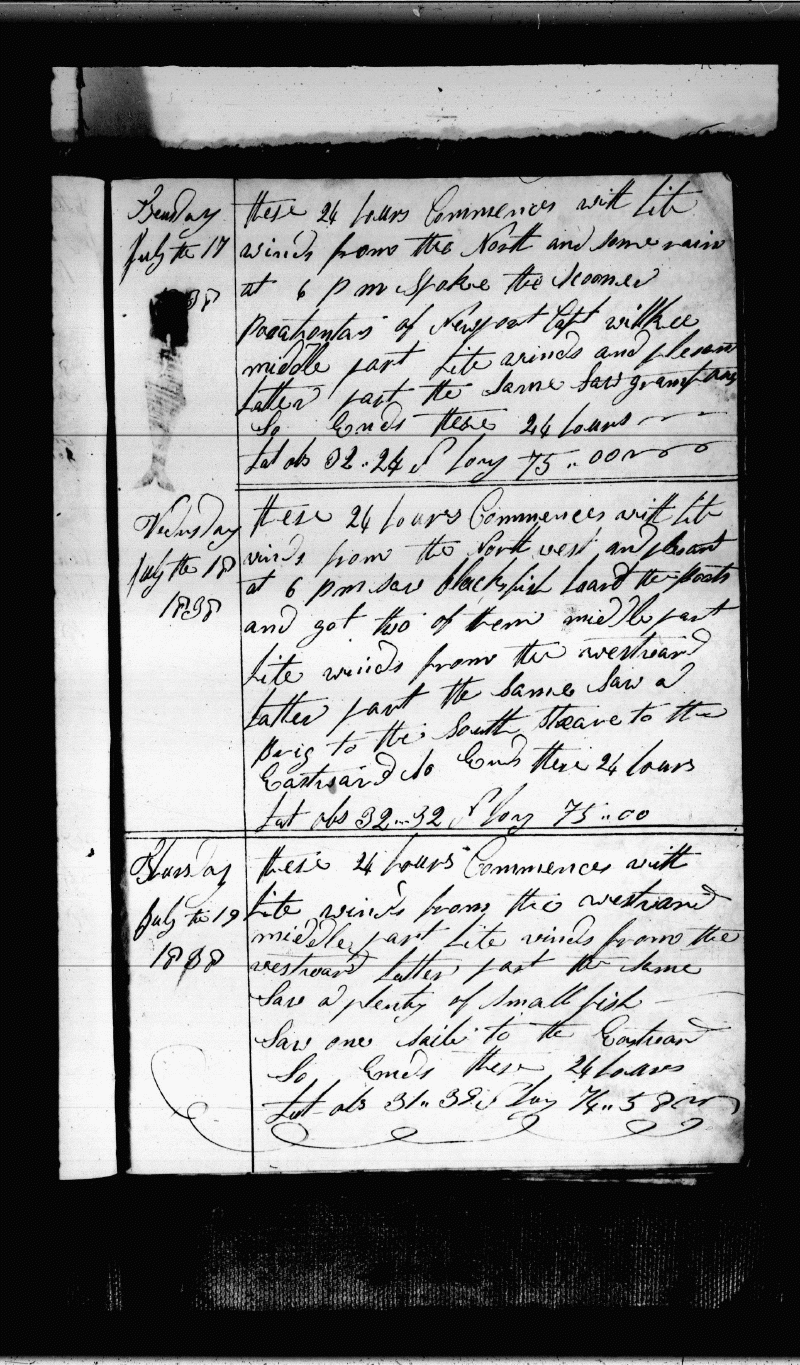 Teusday
July the 17
38
these 24 hours Commences with lite
winds from the North and some rain
at 6 P m Spoke the Scooner
Pocahontas of Newport Capt
middle part Lite winds and plesant
latter part the Same Saw
So Ends these 24 hours
Lat obs 32 .. 24 N long 75 .. 00
Wedusday
July the 18
1838
these 24 hours Commences with lite
winds from the North west and plesant
at 6 P m saw blackfish loard the boats
and got two of them middle part
Lite winds from the westward
latter part the Same Saw a
Brig to the South Steare to the
Eastward So Ends these 24 hours
Lat obs 32 .. 32 N long 75 .. 00
Thursday
July the 19
1838
these 24 hours Commences with
Lite winds from the westward
middle part Lite winds from the
westward latter part the Same
Saw a plenty of Small fish
Saw one Saile to the Eastward
So Ends these 24 hours
Lat obs 31 .. 38 N long 74 .. 58